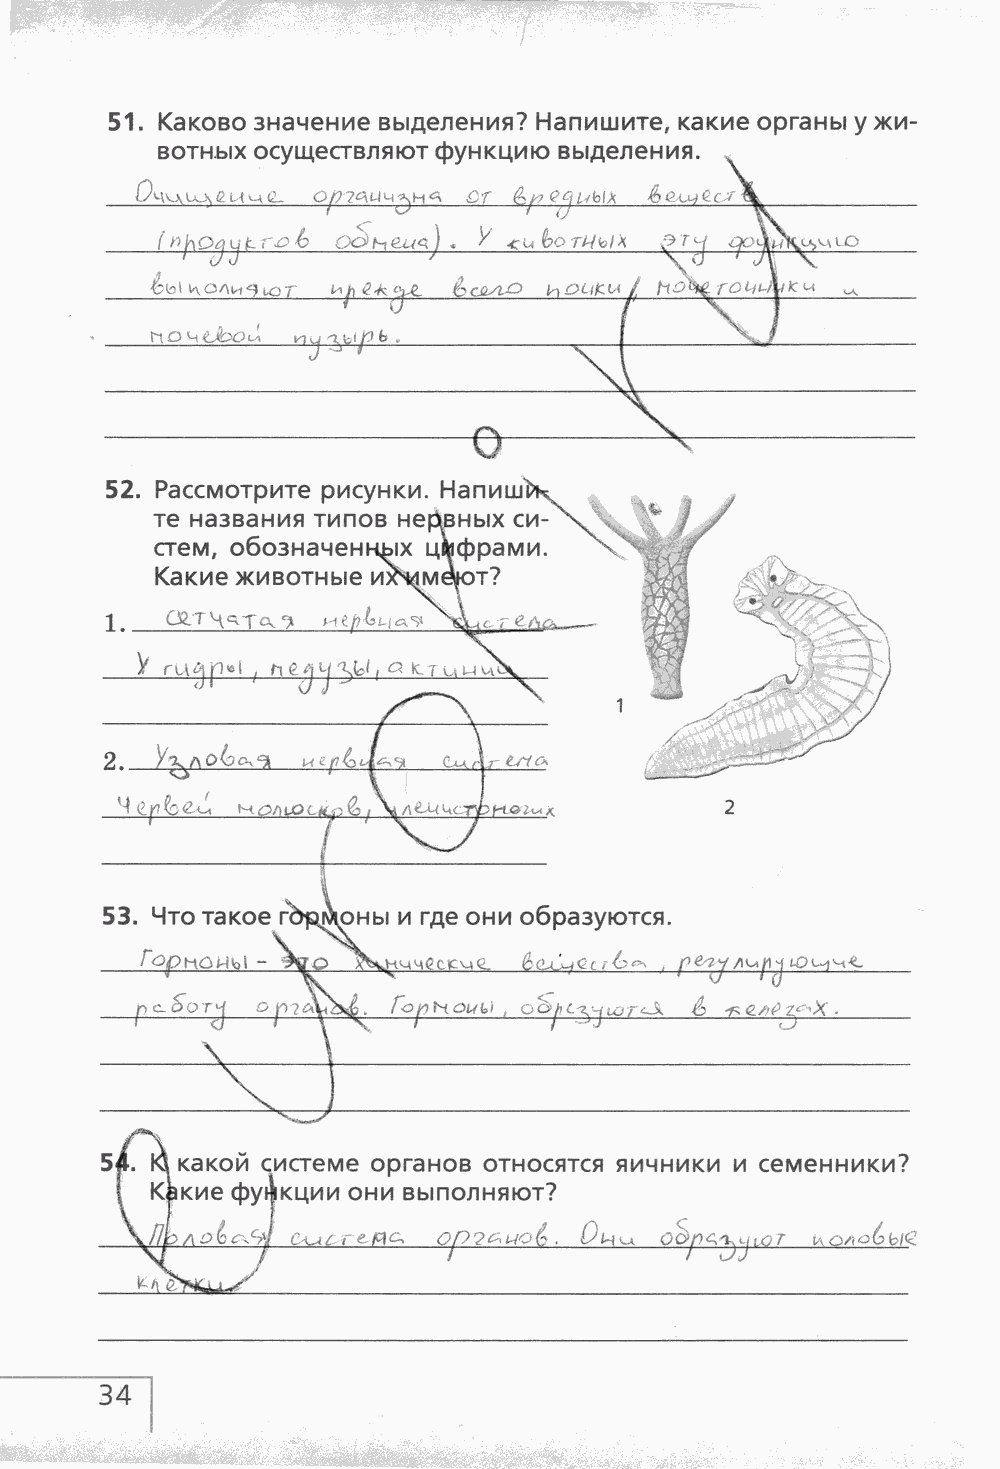 51. Каково значение выделения? Напишите, какие органы у жи-
вотных осуществляют функцию выделения.
Очищение организма от вредных веществ
(продуктов обмена). У животных эту функцию
выполняют прежде всего почки, мочеточники и
мочевой пузырь.
52. Рассмотрите рисунки. Напиши-
те названия типов нервных си-
стем, обозначенных цифрами.
Какие животные их имеют?
1. сетчатая нервная система
У гидры, медузы, актинии
2. Узловая нервная система
Червей молюсков, членистоногих
1
2
53. Что такое гормоны и где они образуются.
Гормоны - это химические вещества, регулирующие
работу органов. Гормоны, образуются в железах.
54. К какой системе органов относятся яичники и семенники?
Какие функции они выполняют?
Половая система органов. Они образуют половые
клетки.
34